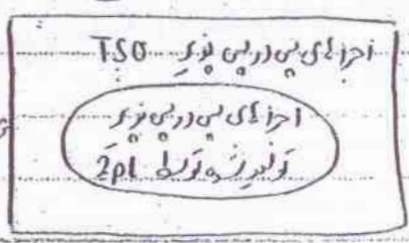 اجرای پی در پی پذیر TSO
اجرای پی در پی پذیر
تولید شده توسط 2pl